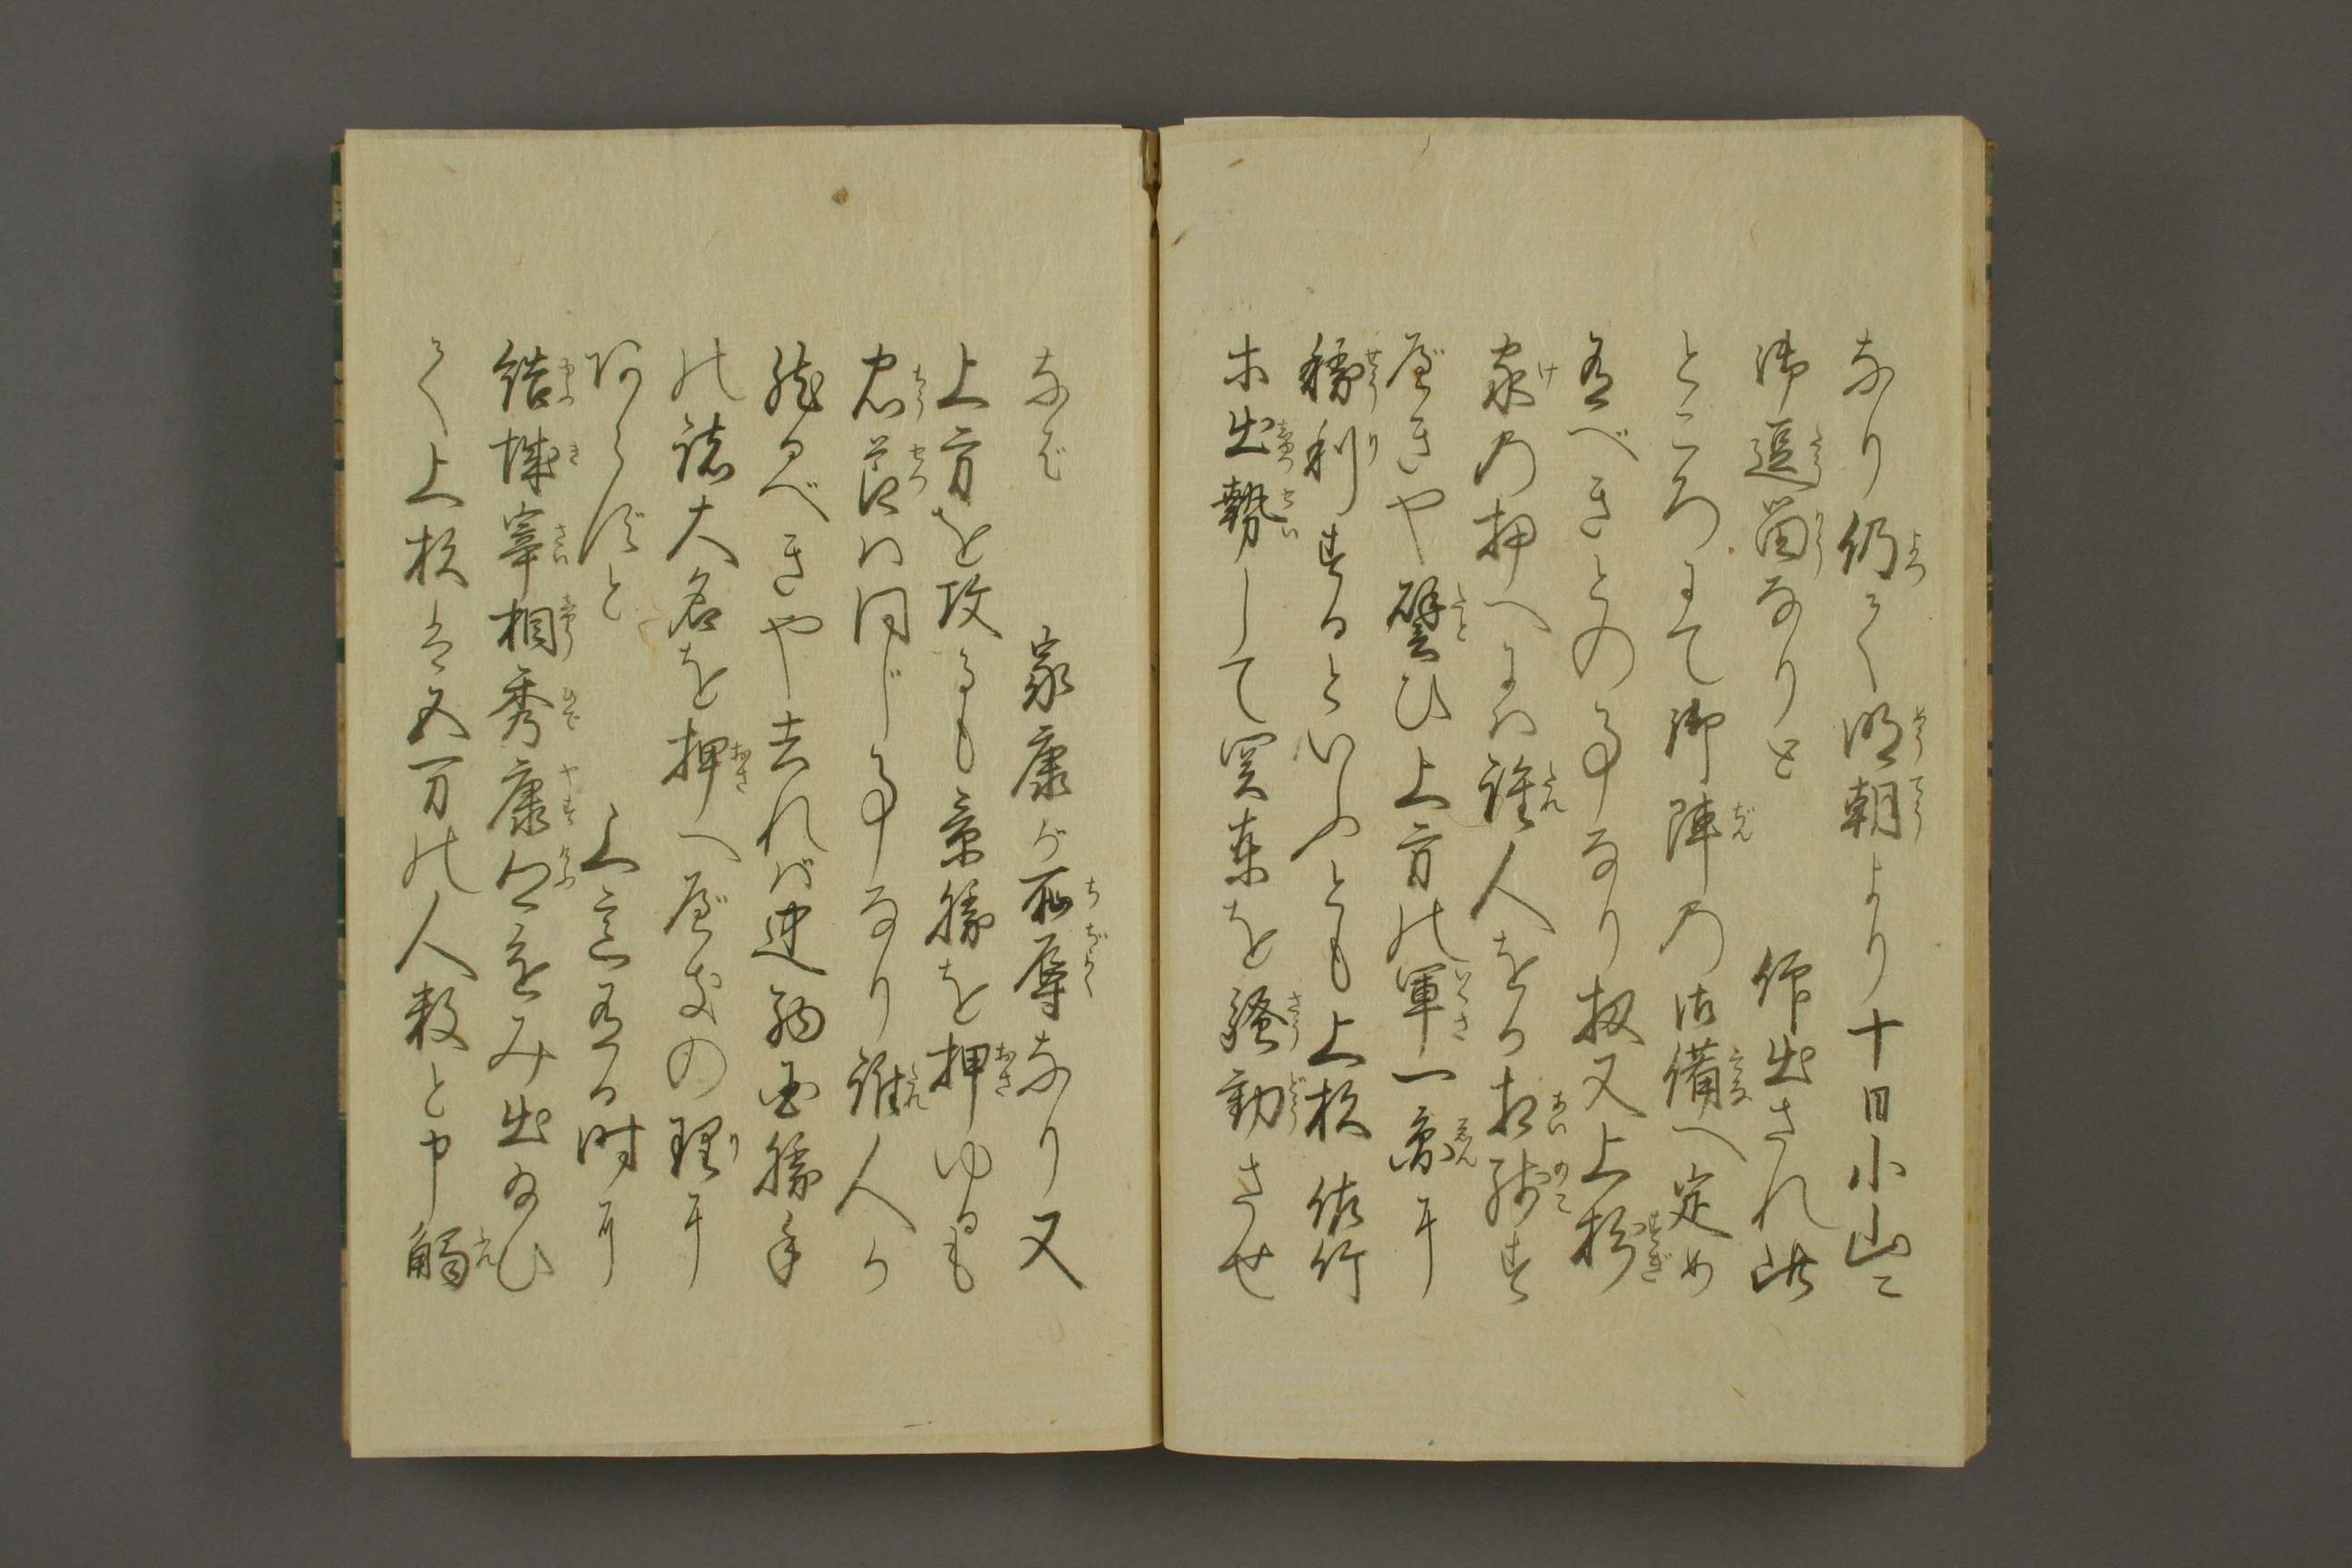 なり仍て明朝より十日小山に
御逗留なりと　仰出され此
ところにて御陣の御備へ定め
有べきとの事なり扨又上杉
家の押へには誰人をか相残す
べきや譬ひ上方の軍一戦に
勝利するといふとも上杉佐竹
出勢して関東を騒動させ
なば　家康が恥辱なり又
上方を攻るも景勝を押ゆるも
忠節は同じ事なり誰人か
残るべきや去れば遠国勝手
の諸大名を押へべきの理に
あらずと　上意有る時に
結城宰相秀康卿進み出給ひ
て上杉は五万の人数と申触